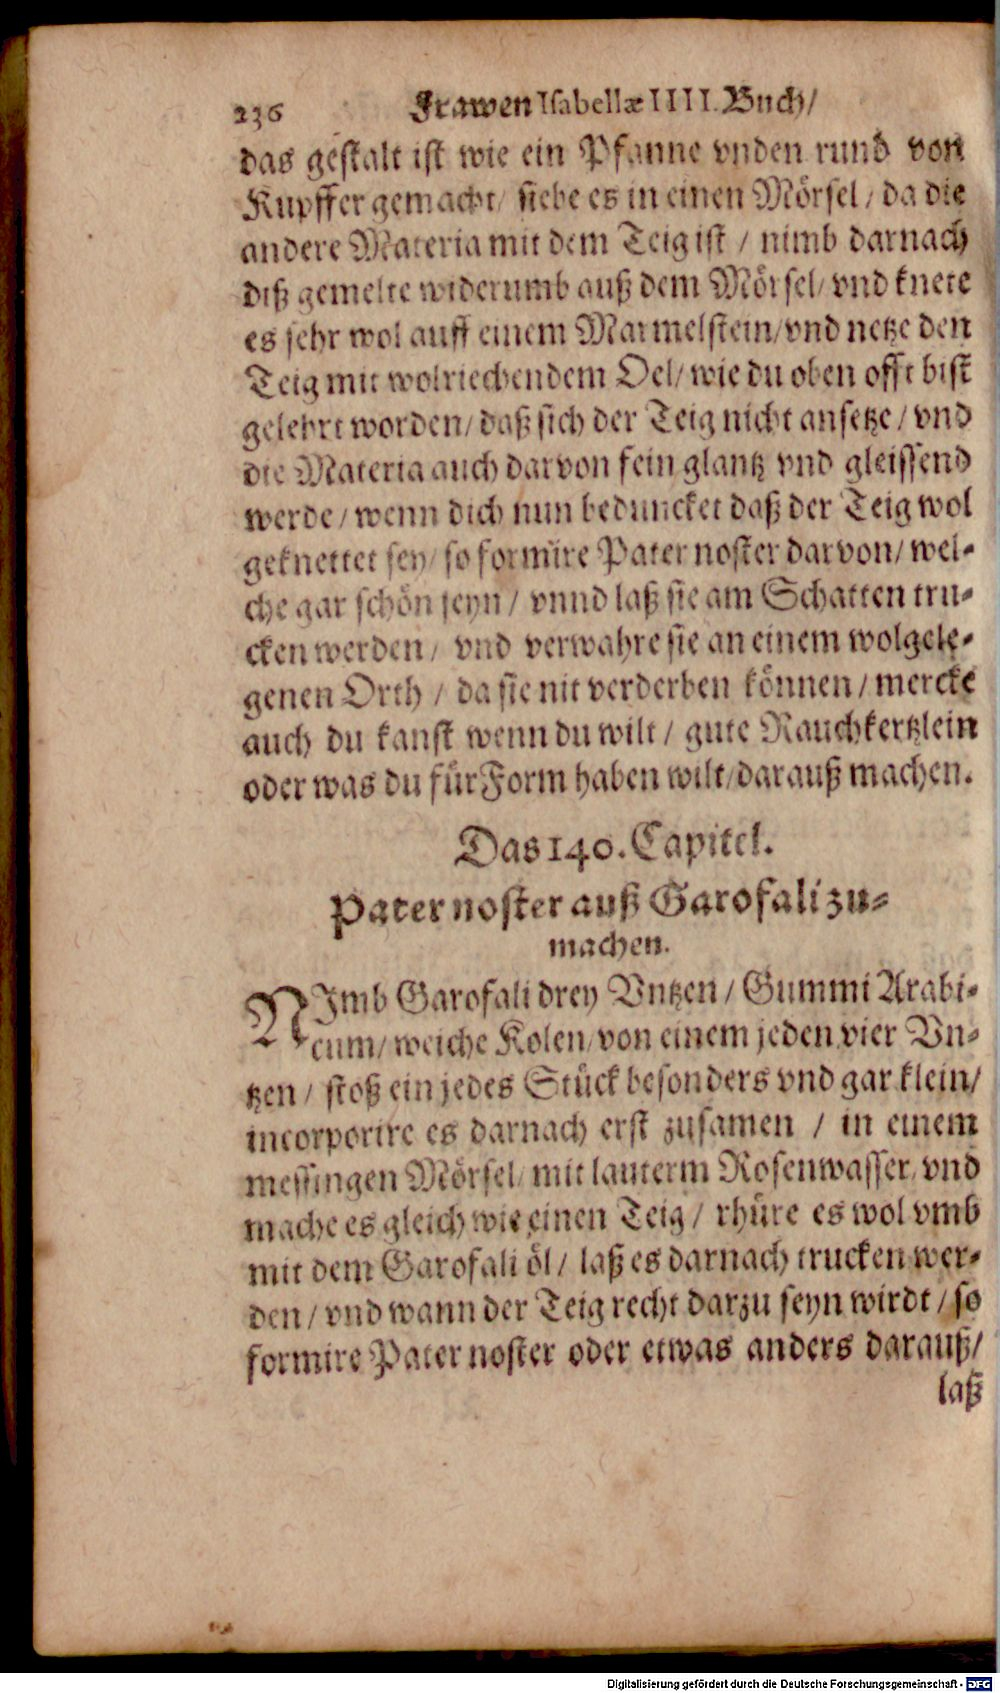 236 Frawen Isabellæ IIII. Buch/
das gestalt ist wie ein Pfanne vnden rund von
Kupffer gemacht/ siebe es in einen Mörsel/ da die
andere Materia mit dem Teig ist / nimb darnach
diß gemelte widerumb auß dem Mörsel/ vnd knete
es sehr wol auff einem Marmelstein/ vnd netze den
Teig mit wolriechendem Oel/ wie du oben offt bist
gelehrt worden/ daß sich der Teig nicht ansetze / vnd
die Materia auch darvon fein glantz vnd gleissend
werde / wenn dich nun beduncket daß der Teig wol
geknettet sey/ so formire Pater noster darvon/ wel-
che gar schön seyn / vnnd laß sie am Schatten tru-
cken werden/ vnd verwahre sie an einem wolgele-
genen Orth / da sie nit verderben können / mercke
auch du kanst wenn du wilt / gute Rauchkertzlein
oder was du für Form haben wilt/ darauß machen.
Das 140. Capitel.
Pater noster auß Garofali zu-
machen.
NImb Garofali drey Vntzen / Gummi Arabi-
cum/ weiche Kolen/ von einem jeden vier Vn-
tzen / stoß ein jedes Stück besonders vnd gar klein/
incorporire es darnach erst zusamen / in einem
messingen Mörsel/ mit lauterm Rosenwasser/ vnd
mache es gleich wie einen Teig / rhüre es wol vmb
mit dem Garofali öl / laß es darnach trucken wer-
den / vnd wann der Teig recht darzu seyn wirdt / so
formire Pater noster oder etwas anders darauß/
laß
Digitalisierung gefördert durch die Deutsche Forschungsgemeinschaft - DFG